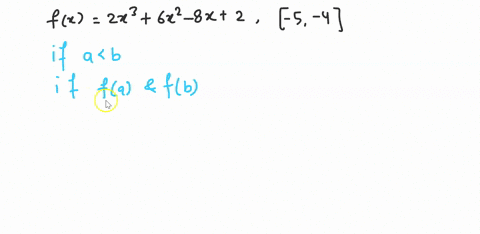 f(x) = 2x³ + 6x² - 8x + 2 , [-5, -4]
if a < b
if f(a) & f(b)